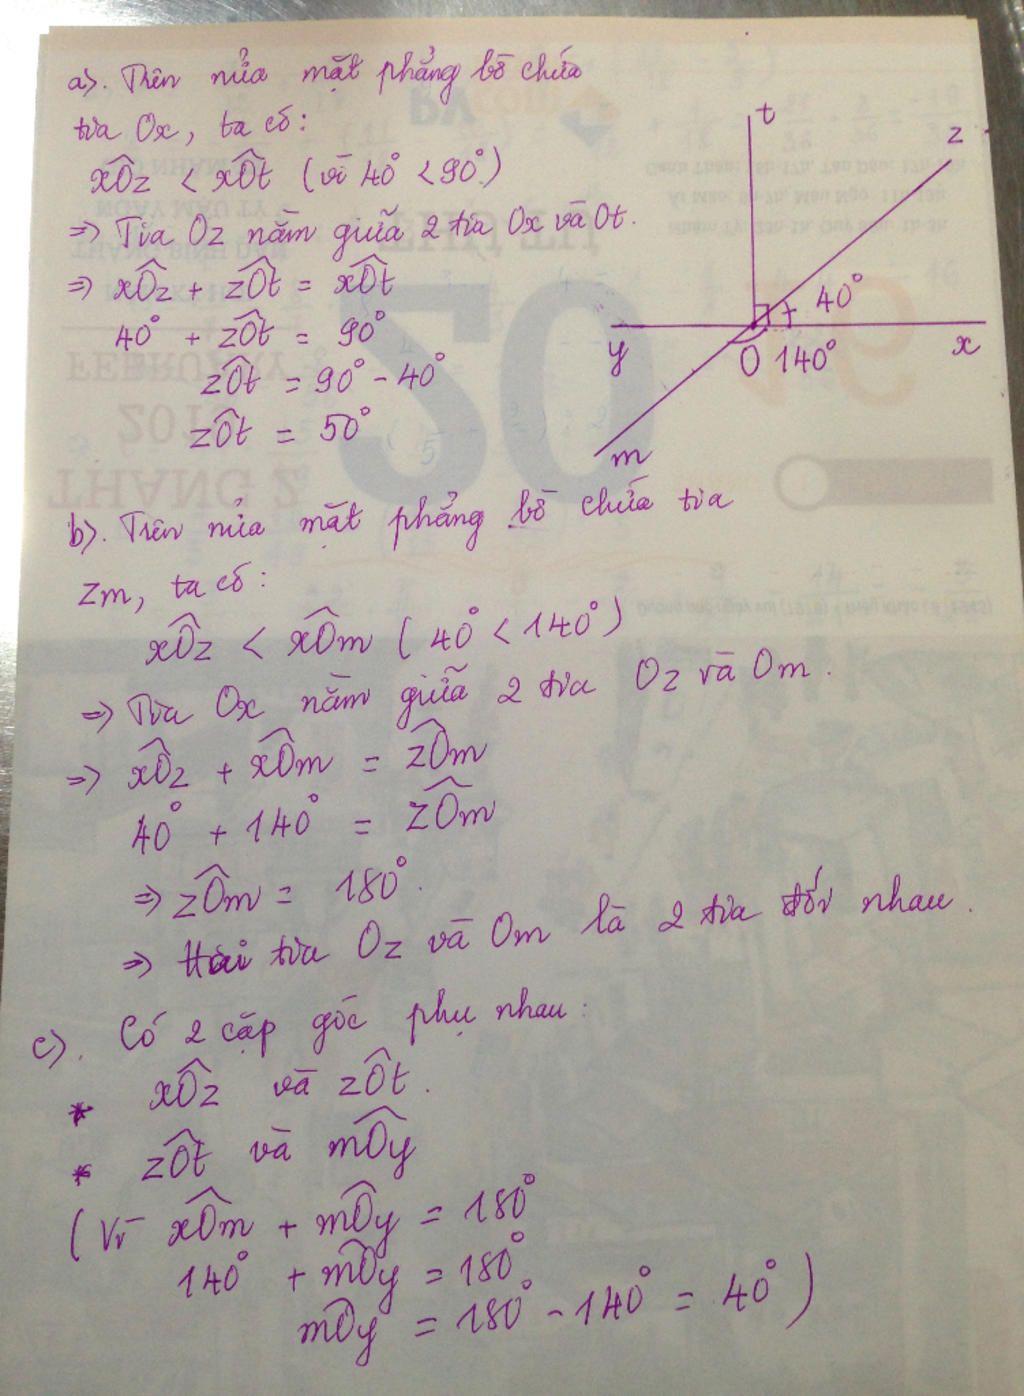 a). Trên nửa mặt phẳng bờ chứa
tia Ox, ta có:
xÔz < xÔt (vì 40° < 90°)
=> Tia Oz nằm giữa 2 tia Ox và Ot.
=> xÔz + zÔt = xÔt
40° + zÔt = 90°
zÔt = 90° - 40°
zÔt = 50°
t
z
40°
y
O
140°
x
m
b). Trên nửa mặt phẳng bờ chứa tia
zm, ta có:
xÔz < xÔm (40° < 140°)
=> Tia Ox nằm giữa 2 tia Oz và Om.
=> xÔz + xÔm = zÔm
40° + 140° = zÔm
=> zÔm = 180°.
=> Hai tia Oz và Om là 2 tia đối nhau.
c). Có 2 cặp góc phụ nhau:
* xÔz và zÔt.
* zÔt và mÔy
(Vì xÔm + mÔy = 180°
140° + mÔy = 180°
mÔy = 180° - 140° = 40°)